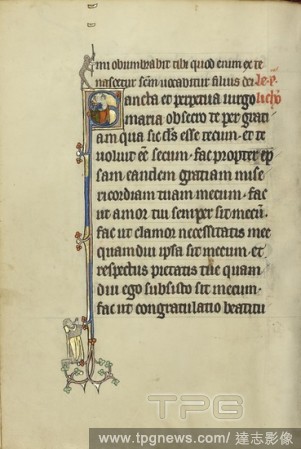 imi obumbrabit tibi quod enim ex te
nascetur scm uocabitur filius dei
Sancta et perpetua uirgo
maria obsecro te per grati
am qua sic es esse tecum et te
uoluit ee secum fac propter
sam eandem gratiam mise
ricordiam tuam mecum fac
ut amor tui semper sit mecu
fac ut clamor necessitatis mee
quamdiu ipsa sit mecum et
respectus pietatis tue quam
diu ego subsisto sit mecum
fac ut congratulatio beatitu
TPG
www.tpgnews.com/ 達志影像